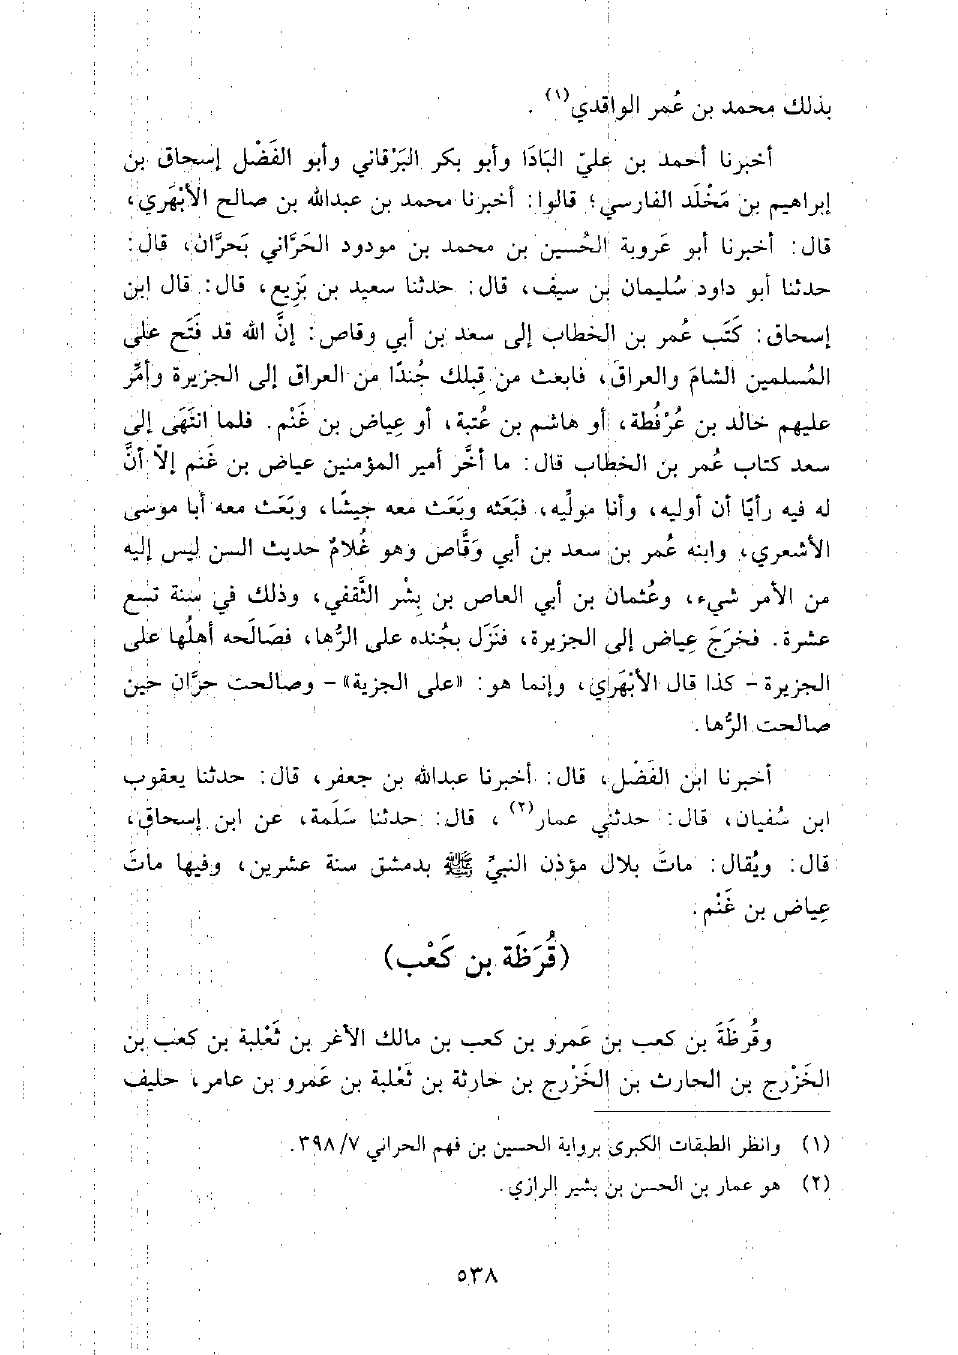 بذلك محمد بن عُمر الواقدي(١) .
أخبرنا أحمد بن عليّ البَادَا وأبو بكر البَرْقاني وأبو الفَضْل إسحاق بن
إبراهيم بن مَخْلَد الفارسي؛ قالوا: أخبرنا محمد بن عبدالله بن صالح الأبْهَري،
قال: أخبرنا أبو عَروبة الحُسين بن محمد بن مودود الحَرَّاني بَحرَّان، قال:
حدثنا أبو داود سُليمان بن سيف، قال: حدثنا سعيد بن بَزِيع، قال: قال ابن
إسحاق: كَتَب عُمر بن الخطاب إلى سعد بن أبي وقاص: إنَّ الله قد فَتَح على
المُسلمين الشامَ والعراقَ، فابعث من قِبلك جُندًا من العراق إلى الجزيرة وأمِّر
عليهم خالد بن عُرْفُطة، أو هاشم بن عُتبة، أو عِياض بن غَنْم. فلما انتَهَى إلى
سعد كتاب عُمر بن الخطاب قال: ما أخَّر أمير المؤمنين عياض بن غَنم إلاّ أنَّ
له فيه رأيًا أن أوليه، وأنا مولِّيه، فبَعَثه وبَعَث معه جيشًا، وبَعَث معه أبا موسى
الأشعري، وابنه عُمر بن سعد بن أبي وَقَّاص وهو غُلامٌ حديث السن ليس إليه
من الأمر شيء، وعُثمان بن أبي العاص بن بِشْر الثَّقفي، وذلك في سنة تسع
عشرة. فخرَجَ عِياض إلى الجزيرة، فنَزَل بجُنده على الرُّها، فصَالَحه أهلُها على
الجزيرة - كذا قال الأبْهَري، وإنما هو: «على الجزية» - وصالحت حرَّان حين
صالحت الرُّها.
أخبرنا ابن الفَضْل، قال: أخبرنا عبدالله بن جعفر، قال: حدثنا يعقوب
ابن سُفيان، قال: حدثني عمار(٢) ، قال: حدثنا سَلَمة، عن ابن إسحاق،
قال: ويُقال: ماتَ بلال مؤذن النبيِّ ﷺ بدمشق سنة عشرين، وفيها ماتَ
عِياض بن غَنْم.
(قُرَظَة بن كَعْب)
وقُرظَةَ بن كعب بن عَمرو بن كعب بن مالك الأغر بن ثَعْلبة بن كعب بن
الخَزْرج بن الحارث بن الخَزْرج بن حارثة بن ثَعْلبة بن عَمرو بن عامر، حليف
(١) وانظر الطبقات الكبرى برواية الحسين بن فهم الحراني ٧/ ٣٩٨.
(٢) هو عمار بن الحسن بن بشير الرازي.
٥٣٨